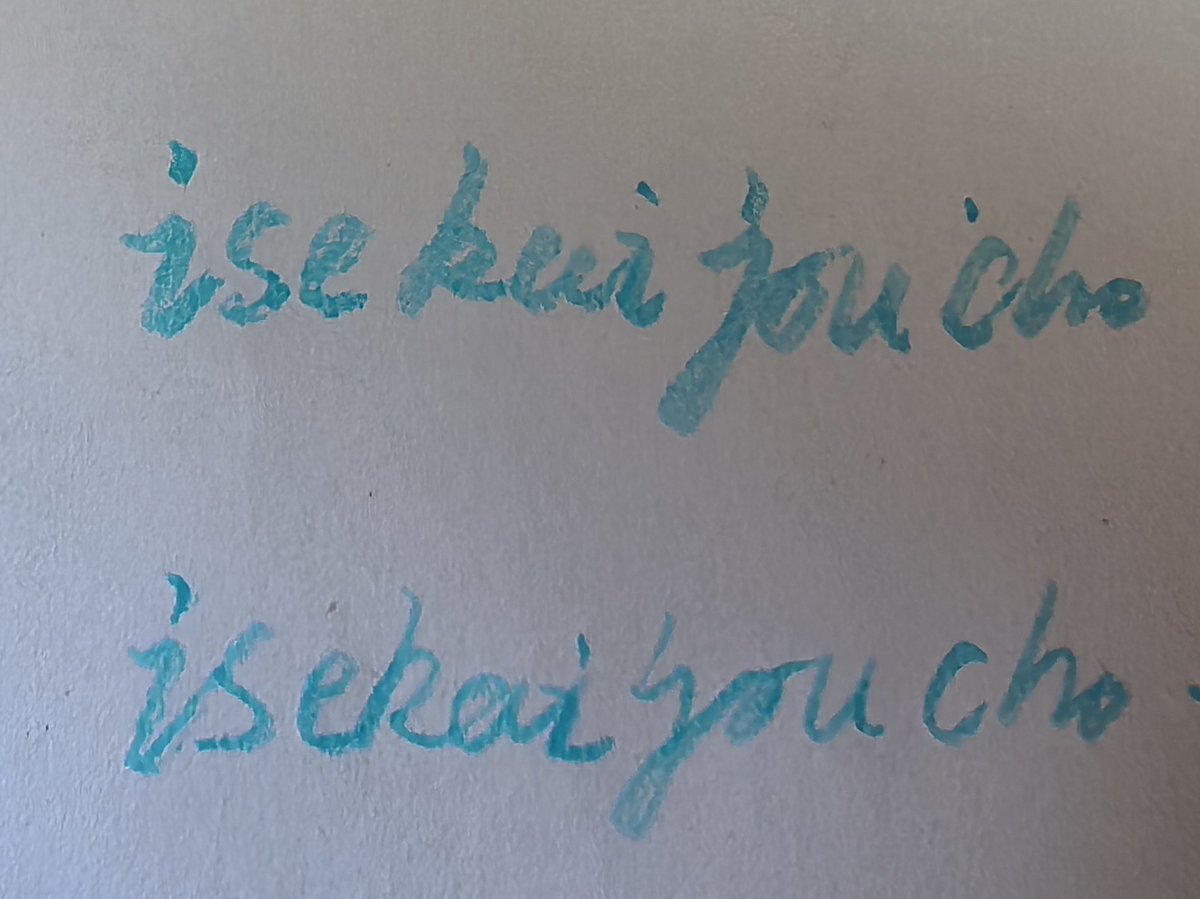 isekai jou cho
isekai jou cho